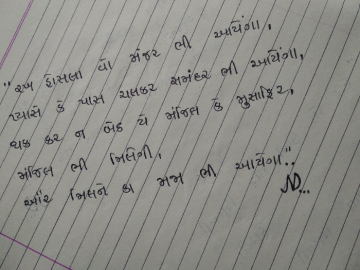 "રખ હોસલા વો મંજર ભી આયેગા,
પ્યાસે કે પાસ ચલકર સમંદર ભી આયેગા,
થક કર ન બેઠ યે મંજિલ કે મુસાફિર,
મંજિલ ભી મિલેગી,
ઔર મિલને કા મજા ભી આયેગા".